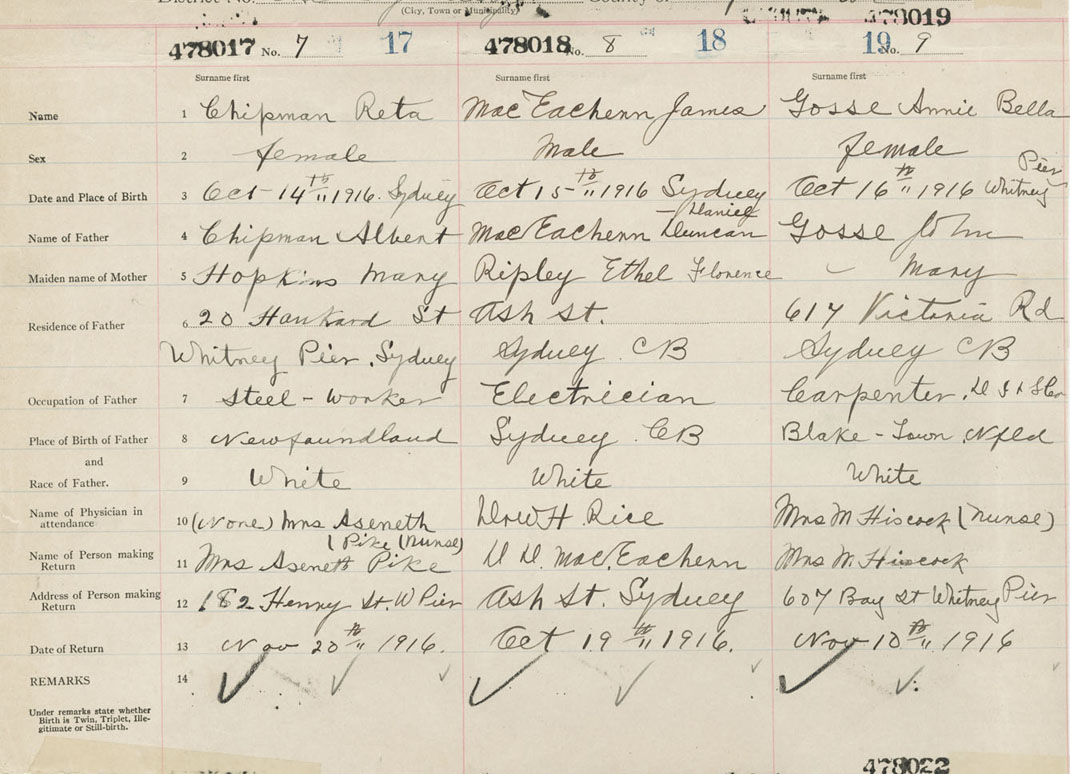 District No.
(City, Town or Municipality)
478019
478017 No. 7 17 478018 No. 8 18 19 No. 9
Surname first Surname first Surname first
Name 1 Chipman Reta MacEachern James Gosse Annie Bella
Sex 2 female Male female
Pier
Date and Place of Birth 3 Oct 14th 1916 Sydney Oct 15th 1916 Sydney Oct 16th 1916 Whitney
Daniel
Name of Father 4 Chipman Albert MacEachern Duncan Gosse John
Maiden name of Mother 5 Hopkins Mary Ripley Ethel Florence — Mary
Residence of Father 6 20 Hankard St Ash St. 617 Victoria Rd
Whitney Pier, Sydney Sydney CB Sydney CB
Occupation of Father 7 Steel-worker Electrician Carpenter,
Place of Birth of Father 8 Newfoundland Sydney CB Blake-Town Nfld
and
Race of Father. 9 White White White
Name of Physician in
attendance 10 (None) Mrs Aseneth H. Rice Mrs M Hiscock (Nurse)
Pike (Nurse)
Name of Person making
Return 11 Mrs Aseneth Pike D D. MacEachern Mrs M. Hiscock
Address of Person making
Return 12 182 Henry St. W Pier Ash St. Sydney 607 Bay St Whitney Pier
Date of Return 13 Nov 20th 1916. Oct 19th 1916. Nov 10th 1916
REMARKS 14
Under remarks state whether
Birth is Twin, Triplet, Ille-
gitimate or Still-birth.
478022